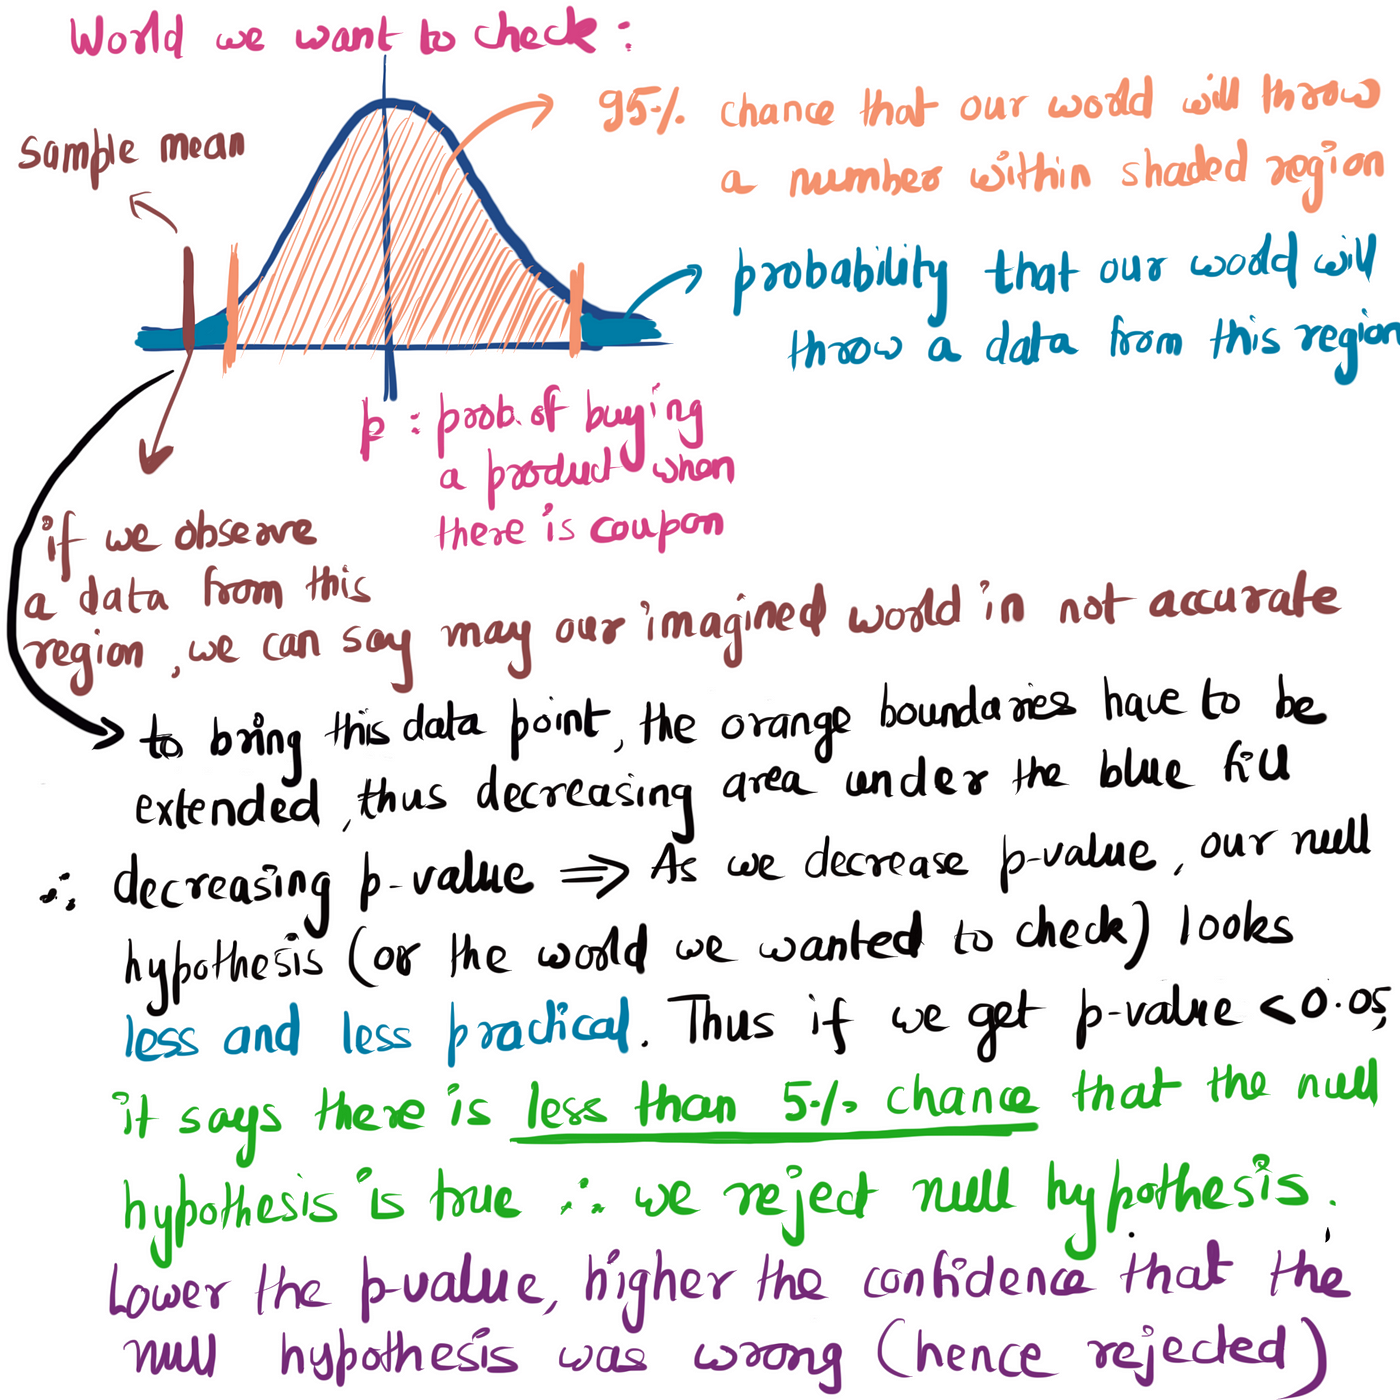 World we want to check :
sample mean
95% chance that our world will throw
a number within shaded region
probability that our world will
throw a data from this region
p : prob. of buying
a product when
there is coupon
if we observe
a data from this
region , we can say may our imagined world in not accurate
to bring this data point, the orange boundaries have to be
extended , thus decreasing area under the blue fill
∴ decreasing p-value ⇒ As we decrease p-value , our null
hypothesis (or the world we wanted to check) looks
less and less practical. Thus if we get p-value < 0.05,
it says there is less than 5% chance that the null
hypothesis is true ∴ we reject null hypothesis.
Lower the p-value, higher the confidence that the
null hypothesis was wrong (hence rejected)